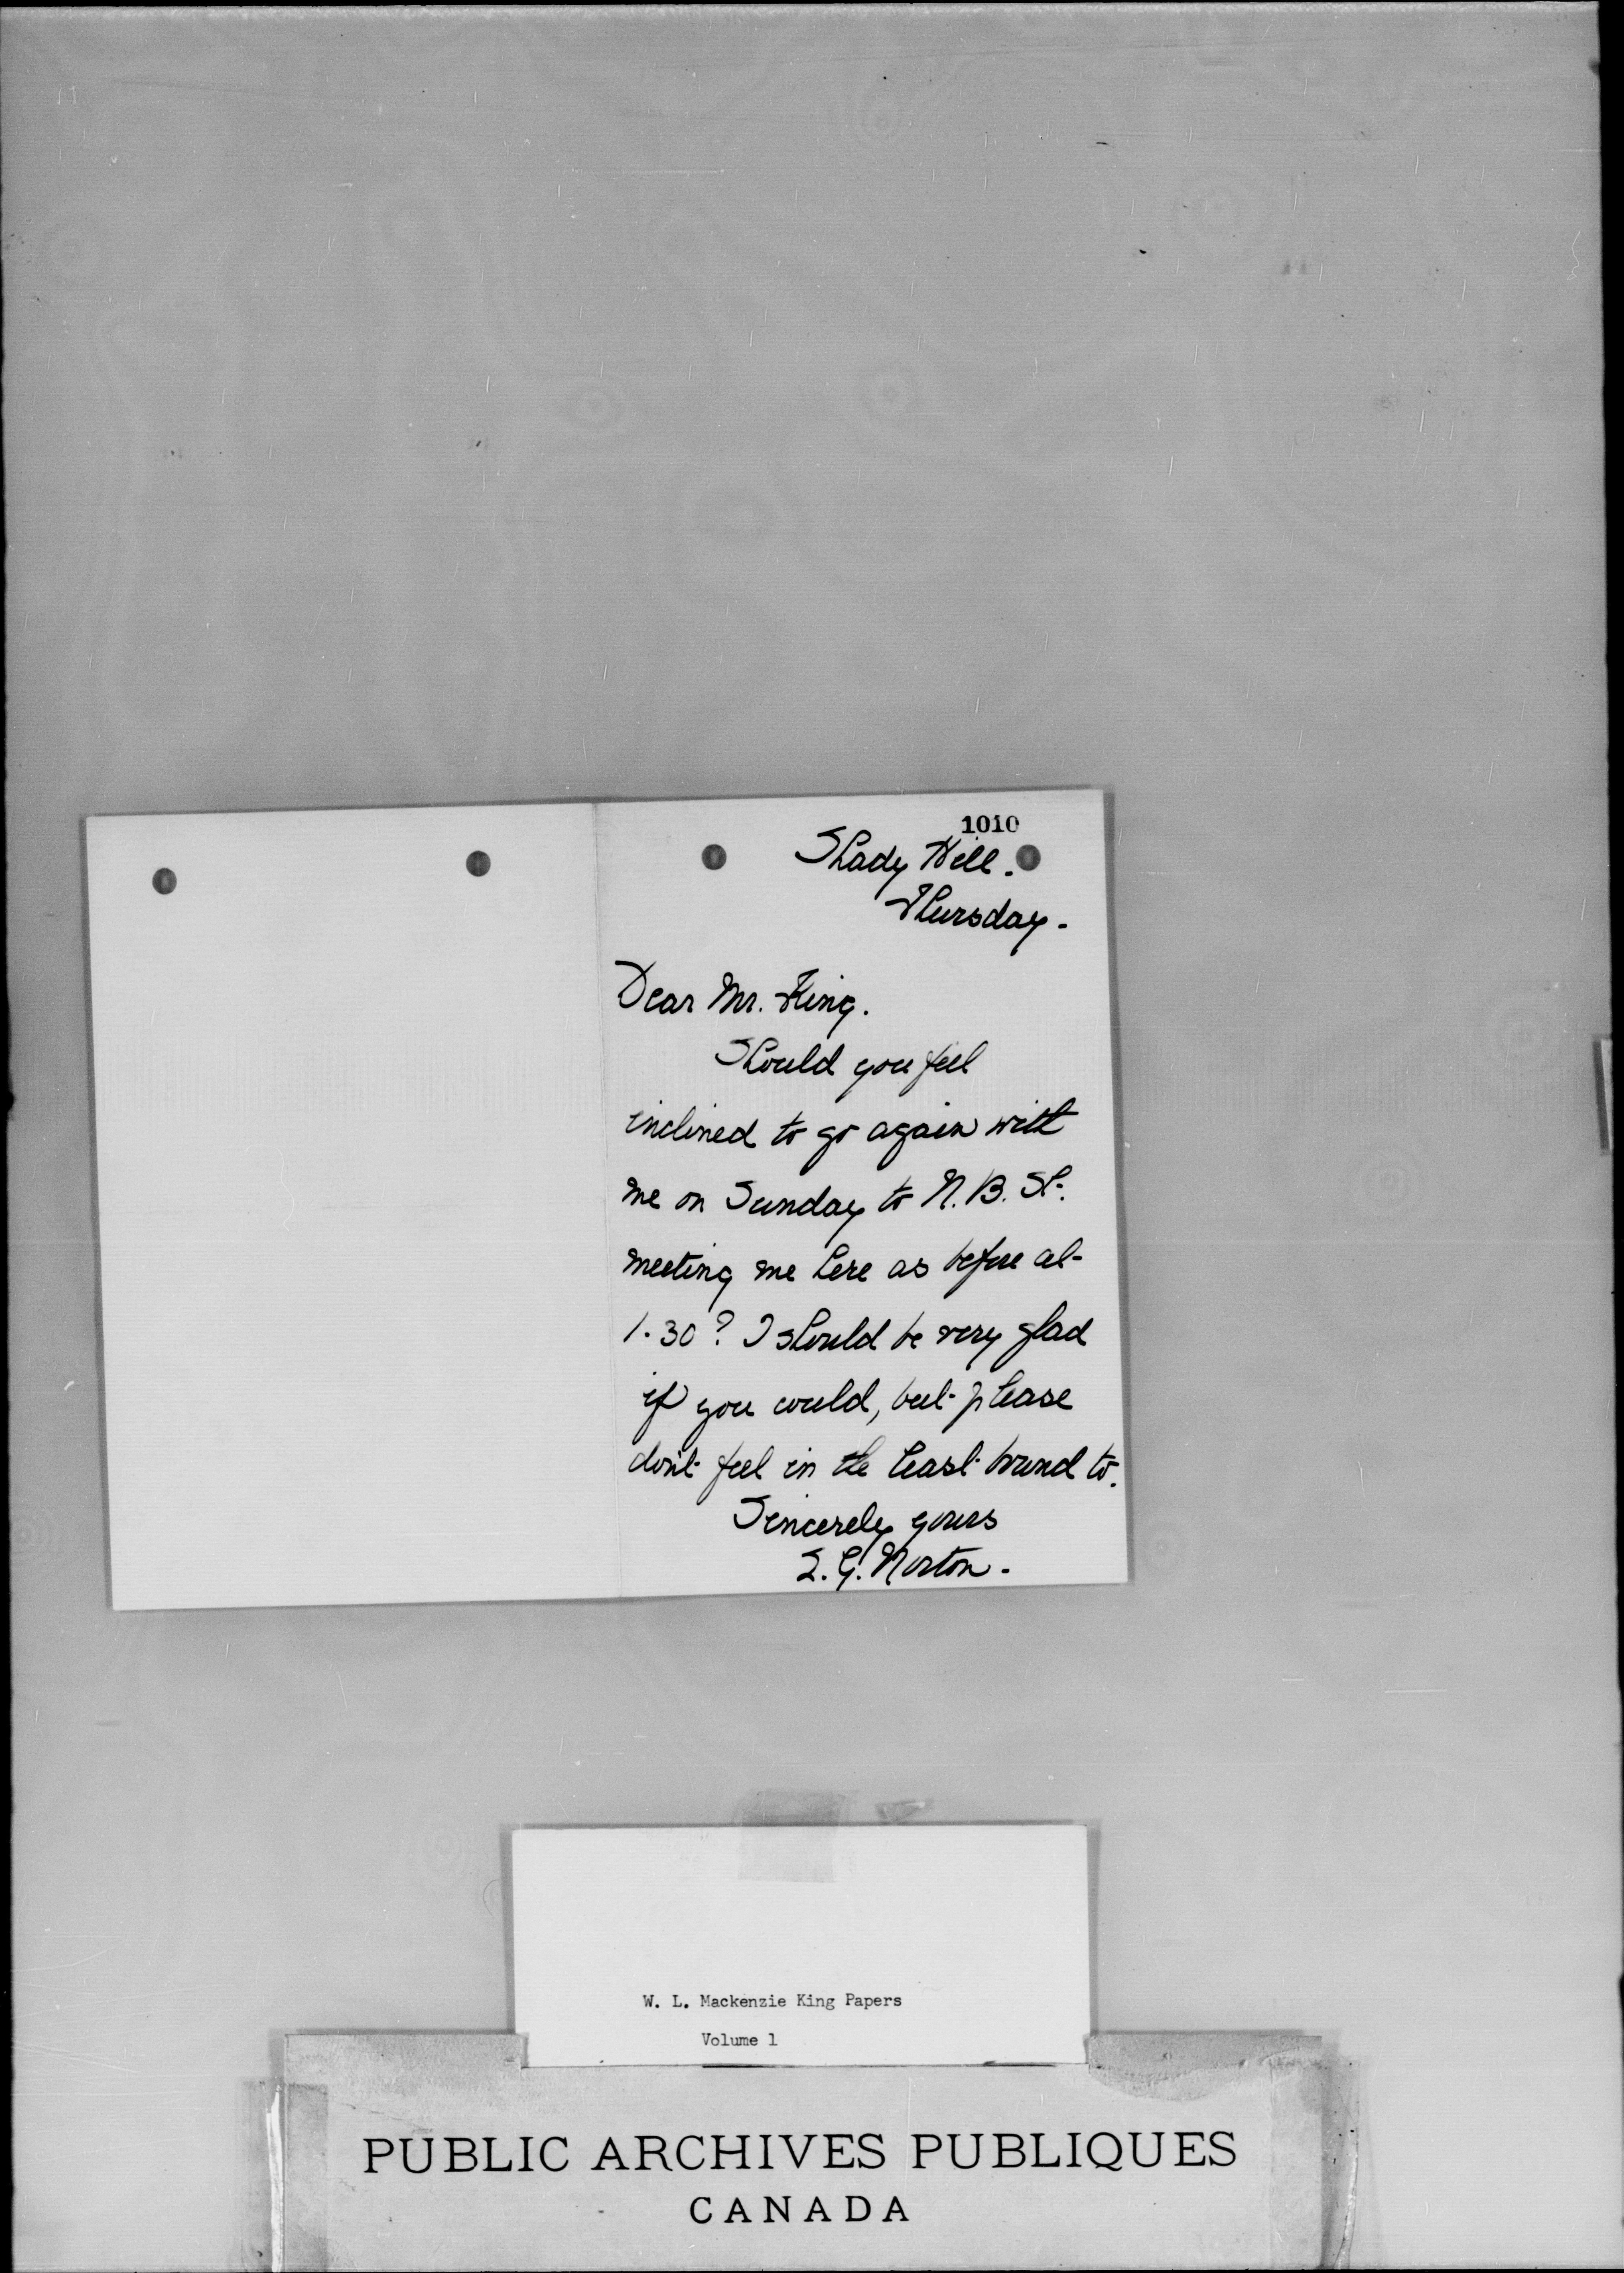 1010
Shady Hill.
Thursday.
Dear Mr. King.
Should you feel
inclined to go again with
me on Sunday to N. B. St.
meeting me here as before at
1.30? I should be very glad
if you could, but please
don't feel in the least bound to.
Sincerely yours
S. G. Norton.
W. L. Mackenzie King Papers
Volume 1
PUBLIC ARCHIVES PUBLIQUES
CANADA